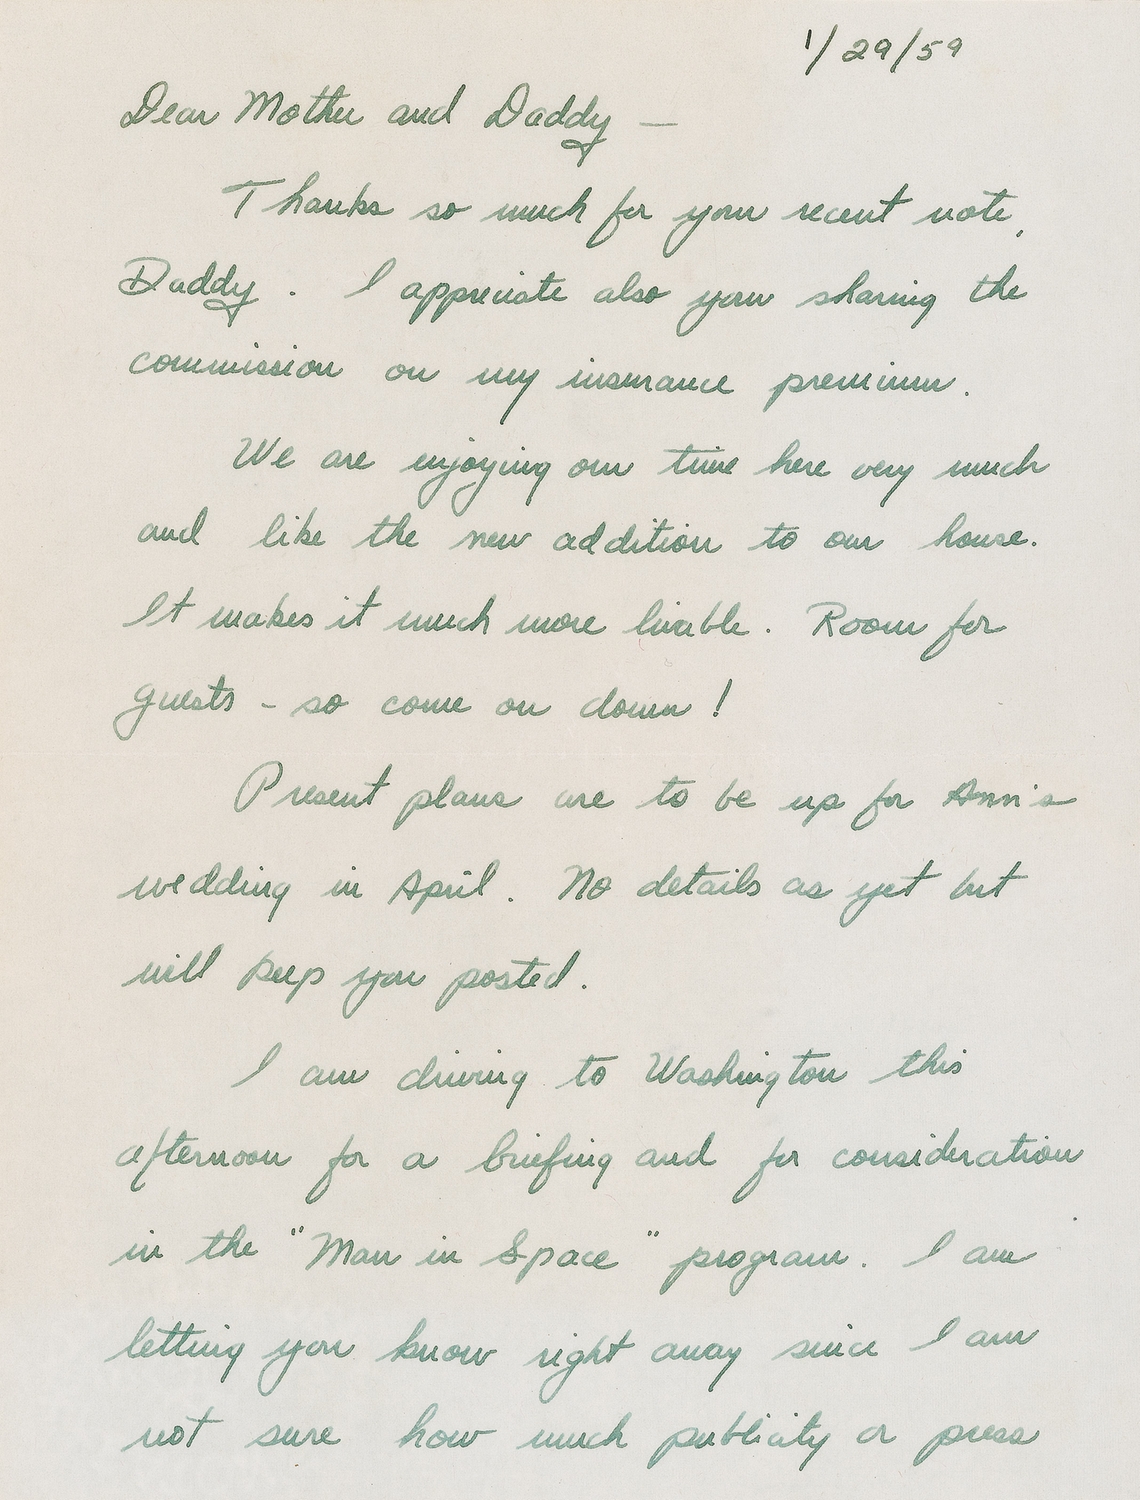 1/29/59
Dear Mother and Daddy —
Thanks so much for your recent note,
Daddy. I appreciate also your sharing the
commission on my insurance premium.
We are enjoying our time here very much
and like the new addition to our house.
It makes it much more livable. Room for
guests - so come on down!
Present plans are to be up for Ann's
wedding in April. No details as yet but
will keep you posted.
I am driving to Washington this
afternoon for a briefing and for consideration
in the "Man in Space" program. I am
letting you know right away since I am
not sure how much publicity or press